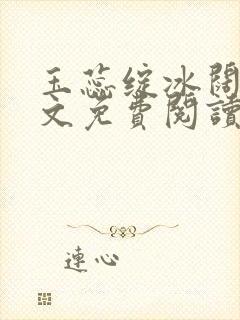 玉蕊綻冰闊
文免費閱讀
連心